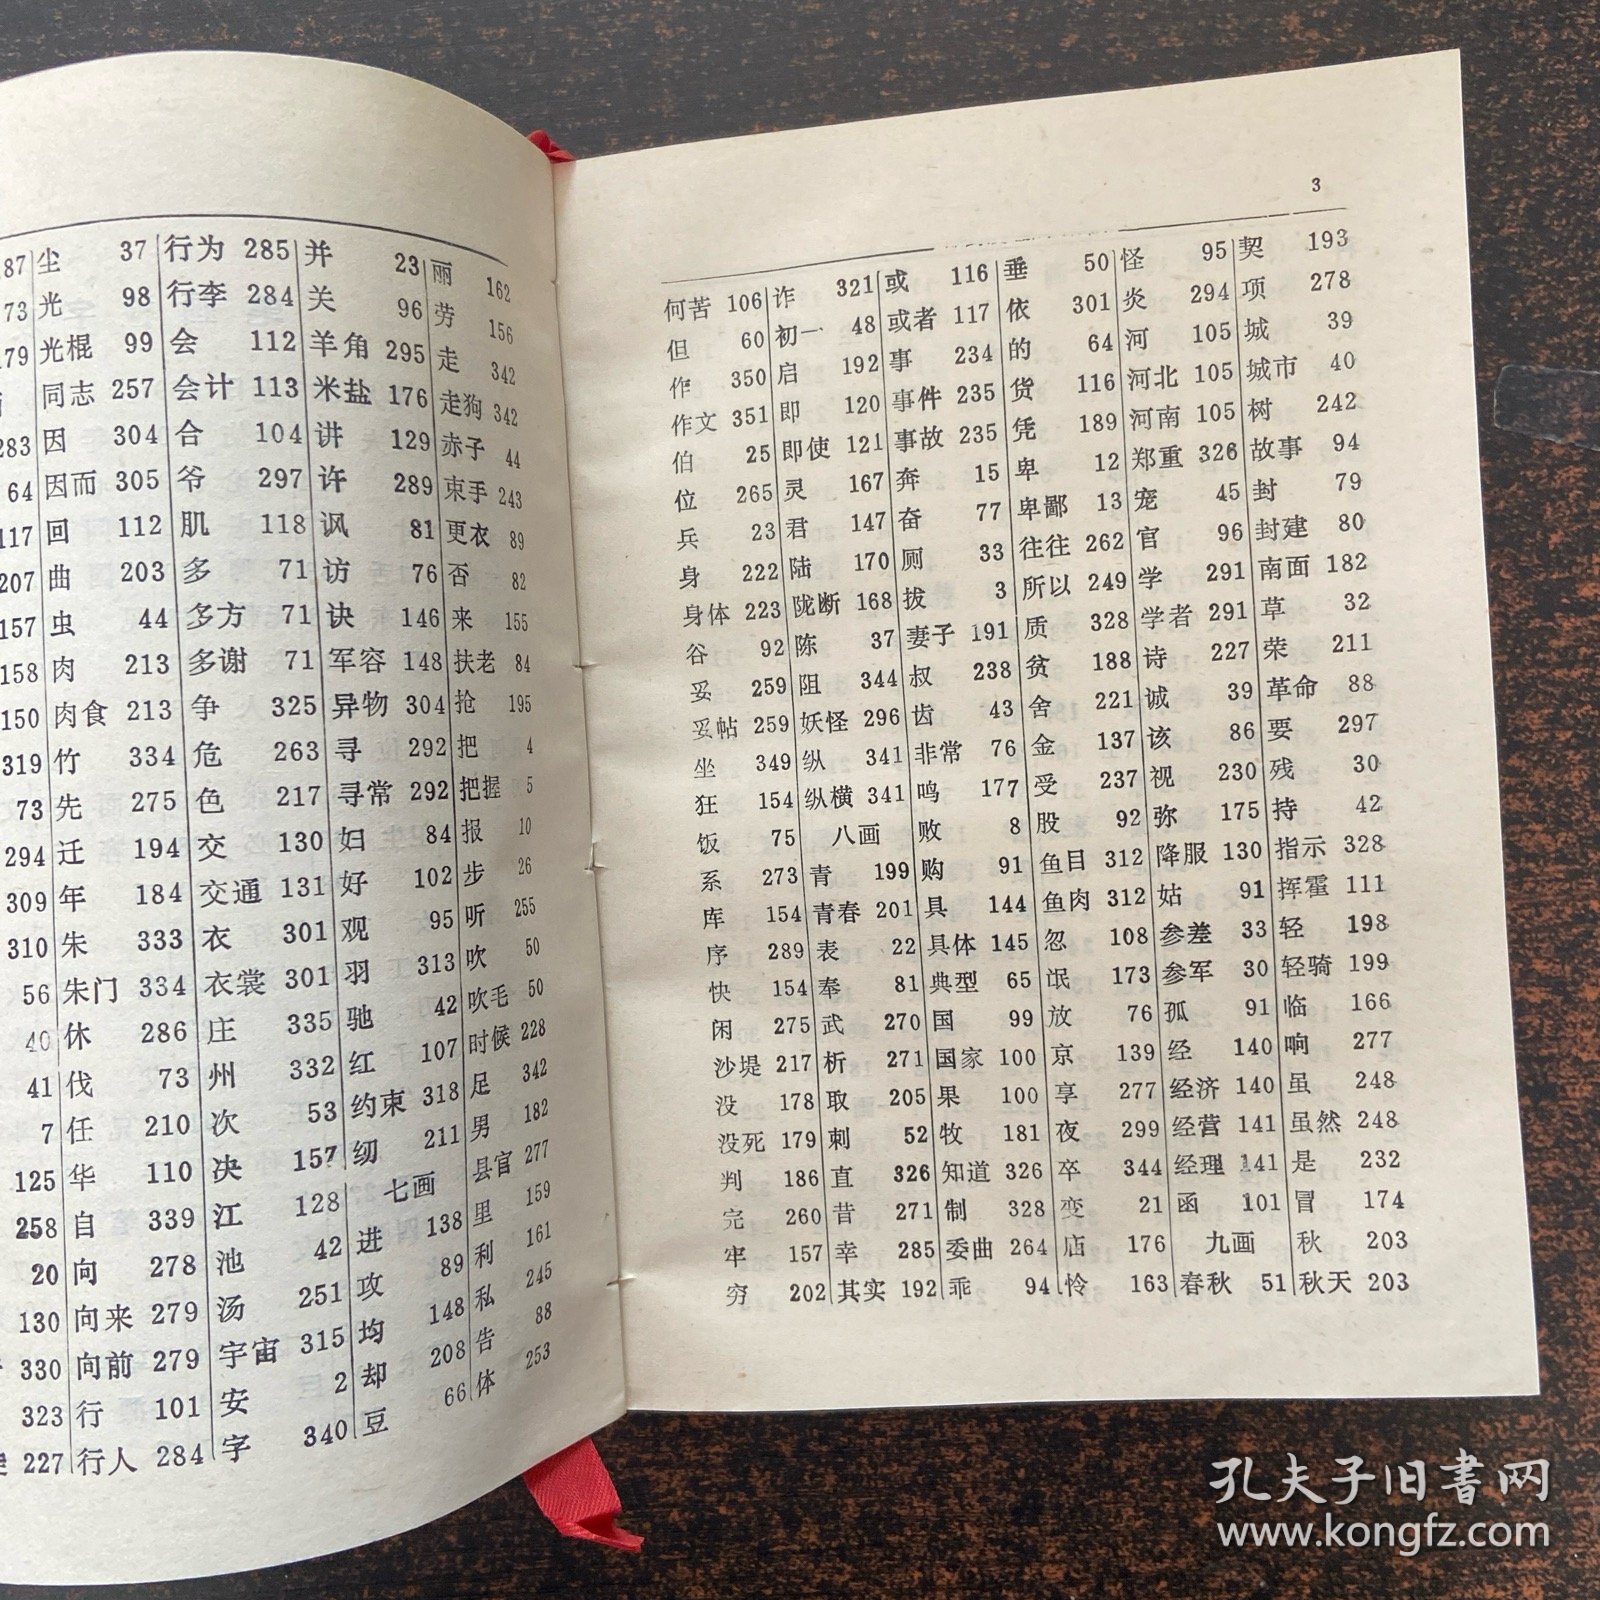 87
73
179
283
64
117
207
157
158
150
319
73
294
309
310
56
40
41
7
125
258
20
130
330
323
227
尘 37
光 98
光棍 99
同志 257
因 304
因而 305
回 112
曲 203
虫 44
肉 213
肉食 213
竹 334
先 275
迁 194
年 184
朱 333
朱门 334
休 286
伐 73
任 210
华 110
自 339
向 278
向来 279
向前 279
行 101
行人 284
行为 285
行李 284
会 112
会计 113
合 104
爷 297
肌 118
多 71
多方 71
多谢 71
争 325
危 263
色 217
交 130
交通 131
衣 301
衣裳 301
庄 335
州 332
次 53
决 157
江 128
池 42
汤 251
宇宙 315
安 2
字 340
并 23
关 96
羊角 295
米盐 176
讲 129
许 289
讽 81
访 76
诀 146
军容 148
异物 304
寻 292
寻常 292
妇 84
好 102
观 95
羽 313
驰 42
红 107
约束 318
纫 211
七画
进 138
攻 89
均 148
却 208
豆 66
丽 162
劳 156
走 342
走狗 342
赤子 44
束手 243
更衣 89
否 82
来 155
扶老 84
抢 195
把 4
把握 5
报 10
步 26
听 255
吹 50
吹毛 50
时候 228
足 342
男 182
县官 277
里 159
利 161
私 245
告 88
体 253
3
何苦 106
但 60
作 350
作文 351
伯 25
位 265
兵 23
身 222
身体 223
谷 92
妥 259
妥帖 259
坐 349
狂 154
饭 75
系 273
库 154
序 289
快 154
闲 275
沙堤 217
没 178
没死 179
判 186
完 260
牢 157
穷 202
诈 321
初一 48
启 192
即 120
即使 121
灵 167
君 147
陆 170
陇断 168
陈 37
阻 344
妖怪 296
纵 341
纵横 341
八画
青 199
青春 201
表 22
奉 81
武 270
析 271
取 205
刺 52
直 326
昔 271
幸 285
其实 192
或 116
或者 117
事 234
事件 235
事故 235
奔 15
奋 77
厕 33
拔 3
妻子 191
叔 238
齿 43
非常 76
鸣 177
败 8
购 91
具 144
具体 145
典型 65
国 99
国家 100
果 100
牧 181
知道 326
制 328
委曲 264
乖 94
垂 50
依 301
的 64
货 116
凭 189
卑 12
卑鄙 13
往往 262
所以 249
质 328
贫 188
舍 221
金 137
受 237
股 92
鱼目 312
鱼肉 312
忽 108
氓 173
放 76
京 139
享 277
夜 299
卒 344
变 21
店 176
怜 163
怪 95
炎 294
河 105
河北 105
河南 105
郑重 326
宠 45
官 96
学 291
学者 291
诗 227
诚 39
该 86
视 230
弥 175
降服 130
姑 91
参差 33
参军 30
孤 91
经 140
经济 140
经营 141
经理 141
函 101
九画
春秋 51
契 193
项 278
城 39
城市 40
树 242
故事 94
封 79
封建 80
南面 182
草 32
荣 211
革命 88
要 297
残 30
持 42
指示 328
挥霍 111
轻 198
轻骑 199
临 166
响 277
虽 248
虽然 248
是 232
冒 174
秋 203
秋天 203
孔夫子旧书网
www.kongfz.com